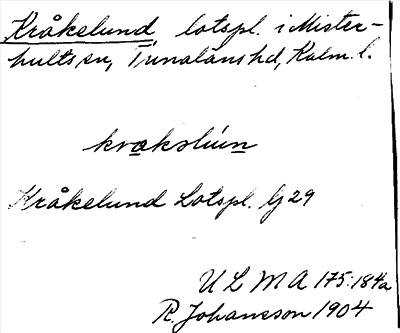 Kråkelund, lotspl. i Mister-
hults sn, Tunaläns hd, Kalm. l.
Kråkelund Lotspl. Gj 29
ULMA 175:184a
R. Johansson 1904